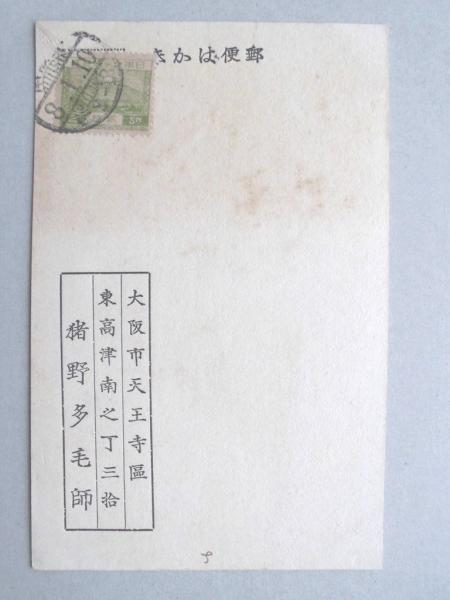 郵便はかき
大阪市天王寺區
東高津南之丁三拾
猪野多毛師
8.1.10